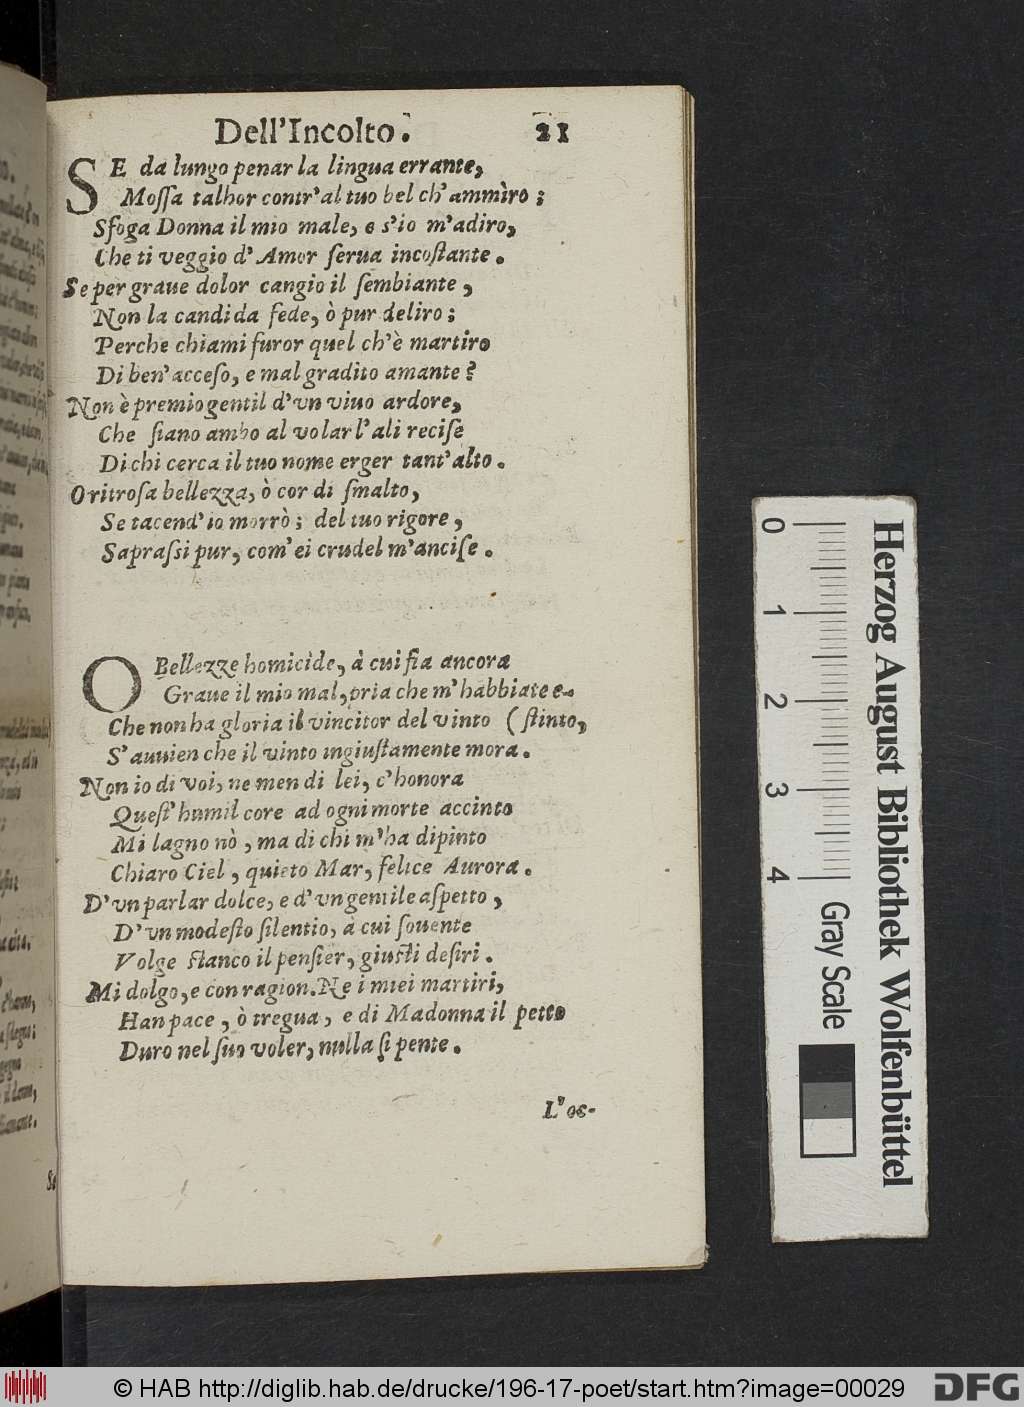 Dell'Incolto. 21
SE da lungo penar la lingua errante,
Moſſa talhor contr'al tuo bel ch'ammiro;
Sfoga Donna il mio male, e s'io m'adiro,
Che ti veggio d'Amor ſerua incoſtante.
Se per graue dolor cangio il ſembiante,
Non la candida fede, ò pur deliro;
Perche chiami furor quel ch'è martiro
Di ben'acceſo, e mal gradito amante?
Non è premio gentil d'vn viuo ardore,
Che ſiano ambo al volar l'ali reciſe
Di chi cerca il tuo nome erger tant'alto.
O ritroſa bellezza, ò cor di ſmalto,
Se tacend'io morrò; del tuo rigore,
Sapraſſi pur, com'ei crudel m'anciſe.
O Bellezze homicide, à cui fia ancora
Graue il mio mal, pria che m'habbiate e-
Che non ha gloria il vincitor del vinto (ſtinto,
S'auuien che il vinto ingiuſtamente mora.
Non io di voi, ne men di lei, c'honora
Queſt'humil core ad ogni morte accinto
Mi lagno nò, ma di chi m'ha dipinto
Chiaro Ciel, quieto Mar, felice Aurora.
D'vn parlar dolce, e d'vn gentile aſpetto,
D'vn modeſto ſilentio, à cui ſouente
Volge ſtanco il penſier, giuſti deſiri.
Mi dolgo, e con ragion. Ne i miei martiri,
Han pace, ò tregua, e di Madonna il petto
Duro nel ſuo voler, nulla ſi pente.
L'os-
0 1 2 3 4
Gray Scale
Herzog August Bibliothek Wolfenbüttel
© HAB http://diglib.hab.de/drucke/196-17-poet/start.htm?image=00029
DFG